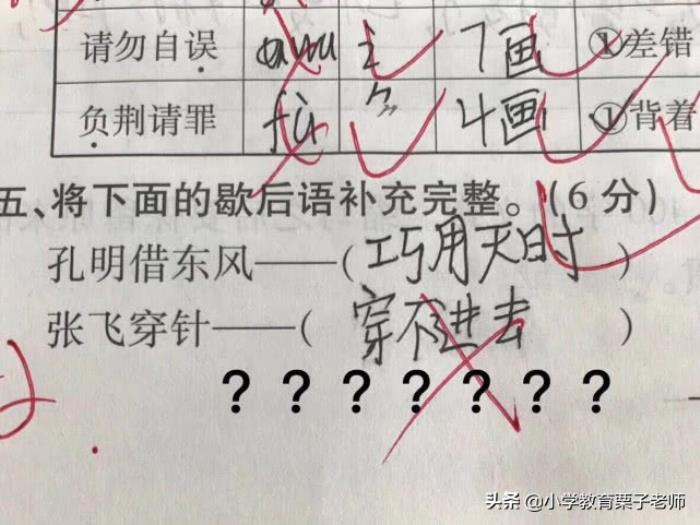 请勿自误 讠 7画 ①差错
负荆请罪 fù ⺈ 4画 ①背着
五、将下面的歇后语补充完整。(6分)
孔明借东风——(巧用天时)
张飞穿针——(穿不进去)
? ? ? ? ? ? ?
头条 @小学教育栗子老师